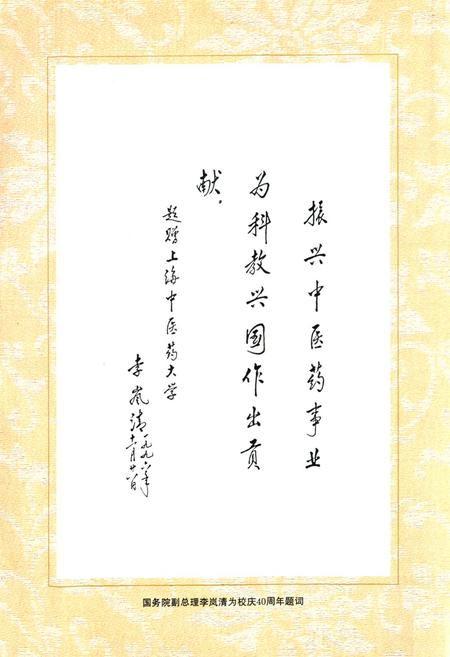 振兴中医药事业
为科教兴国作出贡
献。
题赠上海中医药大学
李岚清
一九九六年
十一月廿八日
国务院副总理李岚清为校庆40周年题词